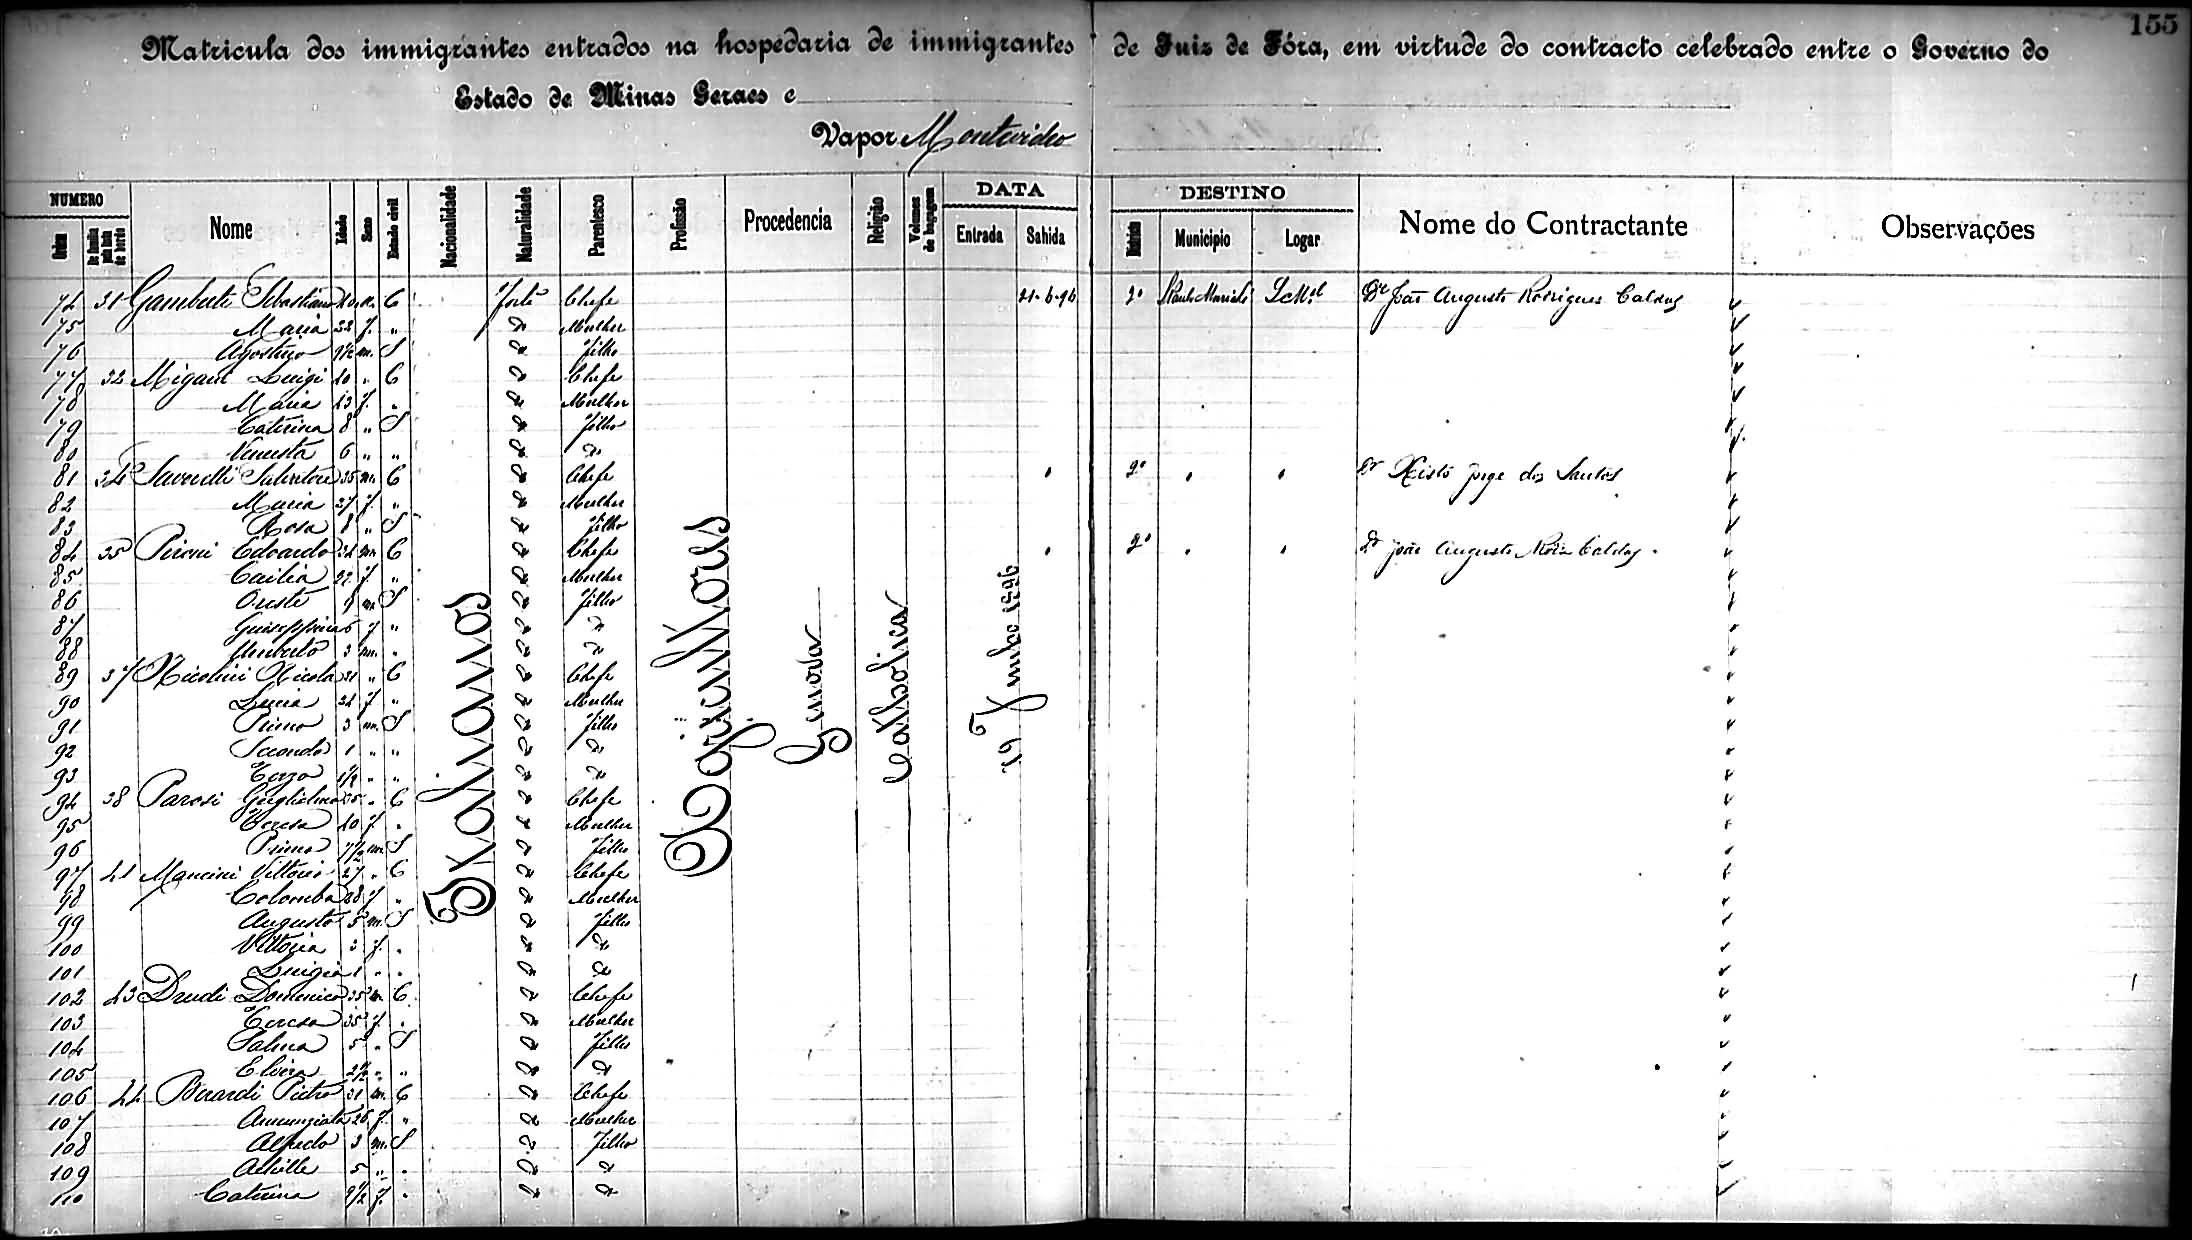 155
Matricula dos immigrantes entrados na hospedaria de immigrantes de Juiz de Fóra, em virtude do contracto celebrado entre o Governo do
Estado de Minas Geraes e
Vapor Montevideo
NUMERO DATA DESTINO
Ordem De familia pela lista de bordo Nome Idade Sexo Estado civil Nacionalidade Naturalidade Parentesco Profissão Procedencia Religião Volumes de bagagem Entrada Sahida Municipio Logar Nome do Contractante Observações
74 31 Gamberti Sebastiano 40 m. C Chefe 21-6-96 2º Dr João Augusto Rodrigues Caldas
75 Maria 32 f. " Mulher
76 Agostino m. S Filho
77 32 Migani Luigi 40 " C Chefe
78 Maria 43 f. " Mulher
79 Caterina 8 " S Filho
80 Venusta 6 " "
81 34 Savorelli Salvatore 35 m. C Chefe 2º Dr Xisto Jorge dos Santos
82 Maria 27 f. " Mulher
83 Rosa 8 " S Filho
84 35 Pironi Edoardo 34 m. C Chefe 2º Dr João Augusto Caldas
85 Cecilia 27 f. " Mulher
86 Oreste 9 m S Filho
87 Giuseppina 6 f "
88 Umberto 3 m. "
89 37 Nicolini Nicola 31 " C Chefe
90 Lucia 34 f " Mulher
91 Primo 3 m. S Filho
92 Secondo 1 " "
93 Terzo 1/2 " "
94 38 Parosi Guglielmo 35 " C Chefe
95 Teresa 40 f " Mulher
96 Primo m. S Filho
97 41 Mancini Vittorio 27 " C Chefe
98 Colomba 28 f " Mulher
99 Augusto 5 m. S Filho
100 Vittoria 3 f. "
101 Luigia 1 " "
102 43 Drudi Domenico 35 m. C Chefe
103 Teresa 35 f. " Mulher
104 Salma 5 " S Filho
105 Elvira " "
106 44 Berardi Pietro 31 m. C Chefe
107 Annunziata 26 f. " Mulher
108 Alfredo 3 m. S Filho
109 Achille 5 " "
110 Caterina f. "
Italianos
Agricultores
Genova
Catholica
19 Junho 1896